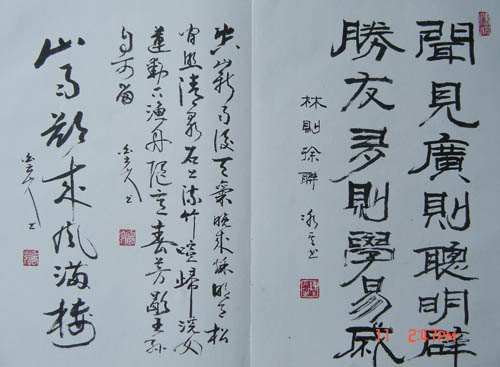 聞見廣則聰明辟
勝友多則學易成
林則徐聯
空山新雨後天氣晚來秋明月松
間照清泉石上流竹喧歸浣女
蓮動下漁舟隨意春芳歇王孫
自可留
山雨欲來風滿樓